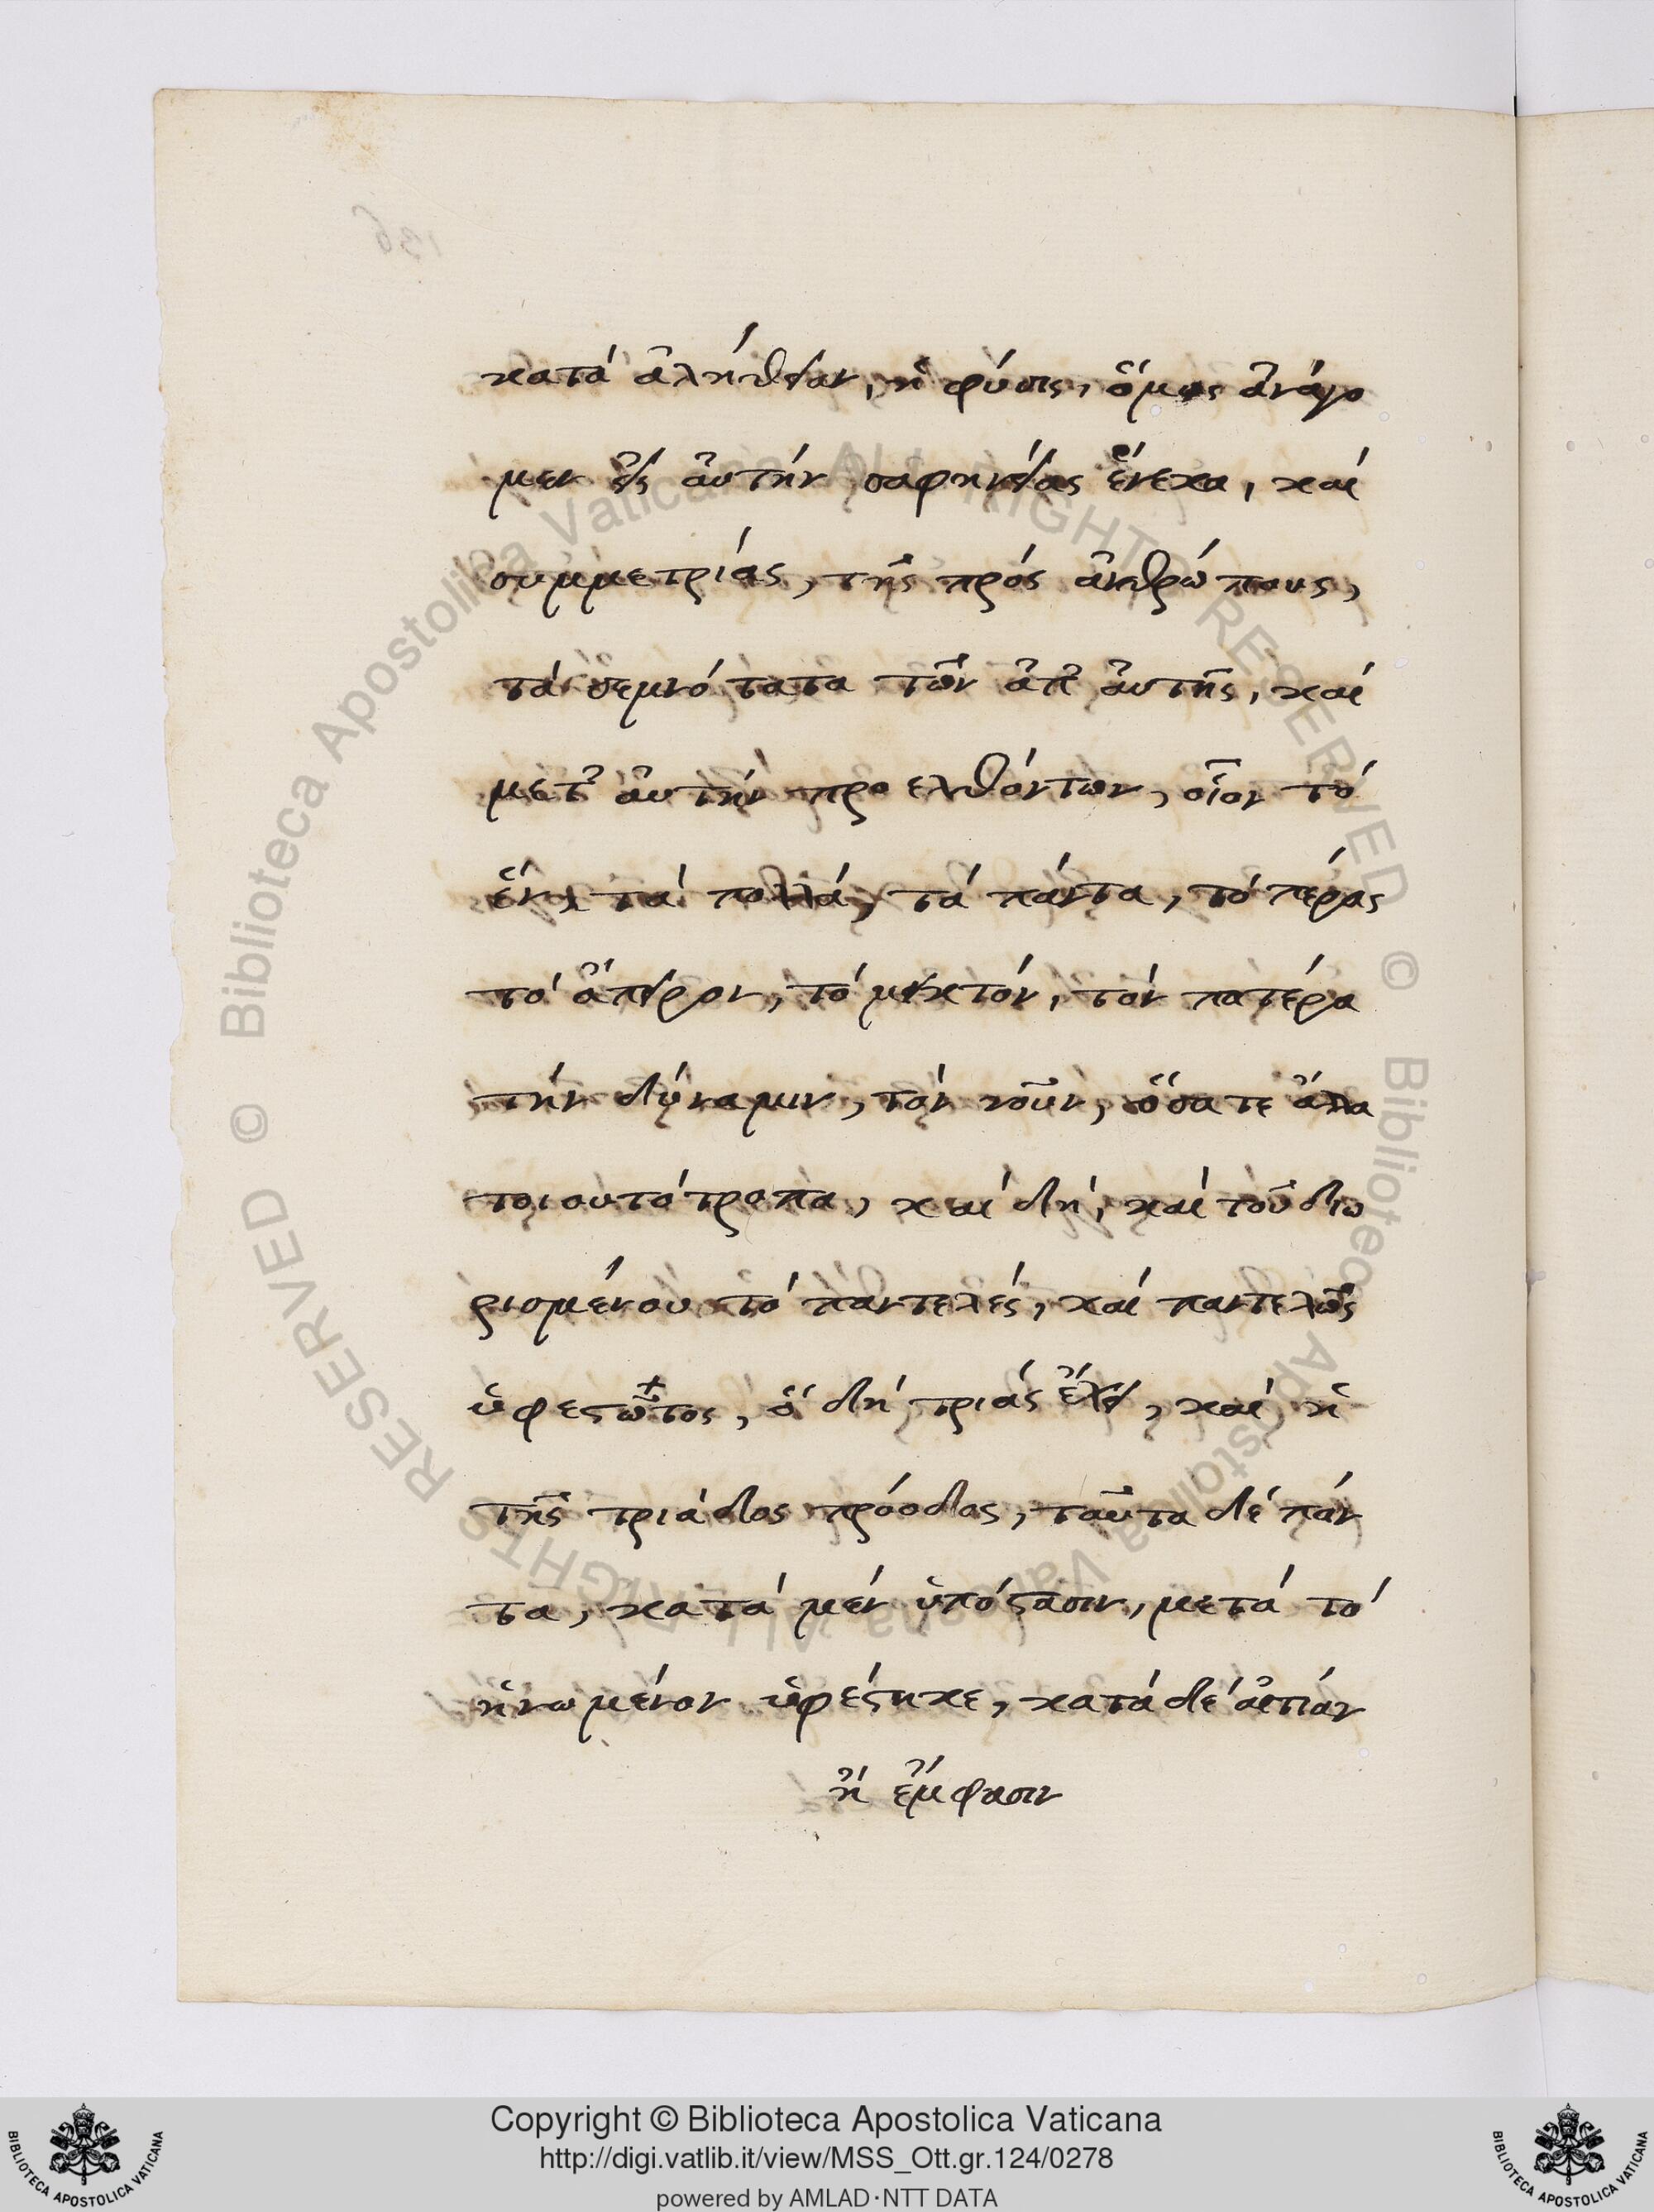 κατά ἀλήθειαν, ἡ φύσις, ὅμως ἀνάγο
μεν εἰς ἀυτήν σαφηνείας ἕνεκα, καί
συμμετρίας, τῆς πρός ἀνθρώπους,
τά σεμνότατα τῶν ἀπ' ἀυτῆς, καί
μετ' ἀυτήν προελθόντων, οἷον τό
ἕν, τά πολλά, τά πάντα, τό πέρας
τό ἄπειρον, τό μικτόν, τόν πατέρα
τήν δύναμιν, τόν νοῦν, ὅσα τε ἄλλα
τοιουτότροπα, καί δή, καί τοῦ διω
ρισμένου τό παντελές, καί παντελῶς
ὑφεστῶτος, ὅ δή τριάς ἔχει, καί ἡ
τῆς τριάδος πρόοδος, ταῦτα δέ πάν
τα, κατά μέν ὑπόστασιν, μετά τό
ἡνωμένον ὑφέστηκε, κατά δέ ἀιτίαν
ἤ ἔμφασιν
136
© Biblioteca Apostolica Vaticana ALL RIGHTS RESERVED © Biblioteca Apostolica Vaticana ALL RIGHTS RESERVED
Copyright © Biblioteca Apostolica Vaticana
http://digi.vatlib.it/view/MSS_Ott.gr.124/0278
powered by AMLAD·NTT DATA
BIBLIOTECA APOSTOLICA VATICANA
BIBLIOTECA APOSTOLICA VATICANA